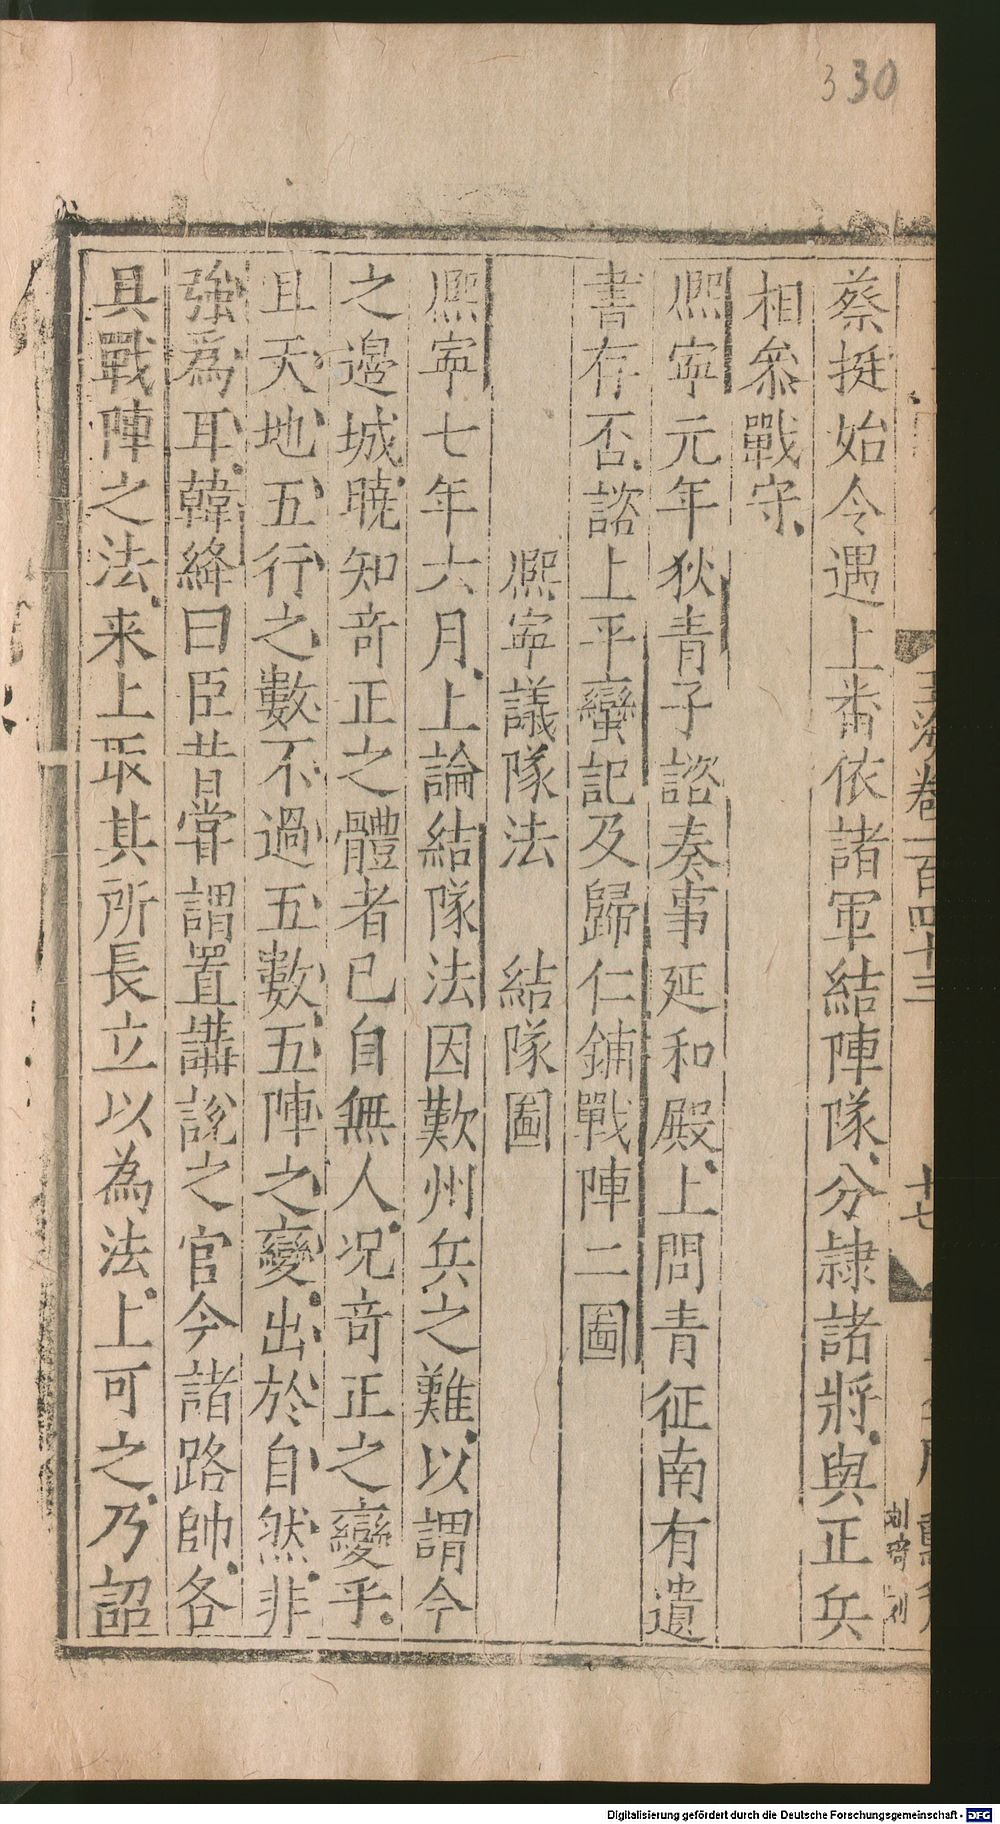 330
玉海卷一百四十三
十七
蔡挺始令遇上番依諸軍結陣隊分隷諸將與正兵
相叅戰守
熈寧元年狄青子諮奏事延和殿上問青征南有遺
書存否諮上平蠻記及歸仁鋪戰陣二圖
熈寧議隊法　結隊圖
熈寧七年六月上論結隊法因歎州兵之難以謂今
之邉城曉知竒正之體者已自無人况竒正之變乎
且天地五行之數不過五數五陣之變出於自然非
強爲耳韓絳曰臣昔甞謂置講說之官今諸路帥各
具戰陣之法来上取其所長立以為法上可之乃詔
Digitalisierung gefördert durch die Deutsche Forschungsgemeinschaft - DFG